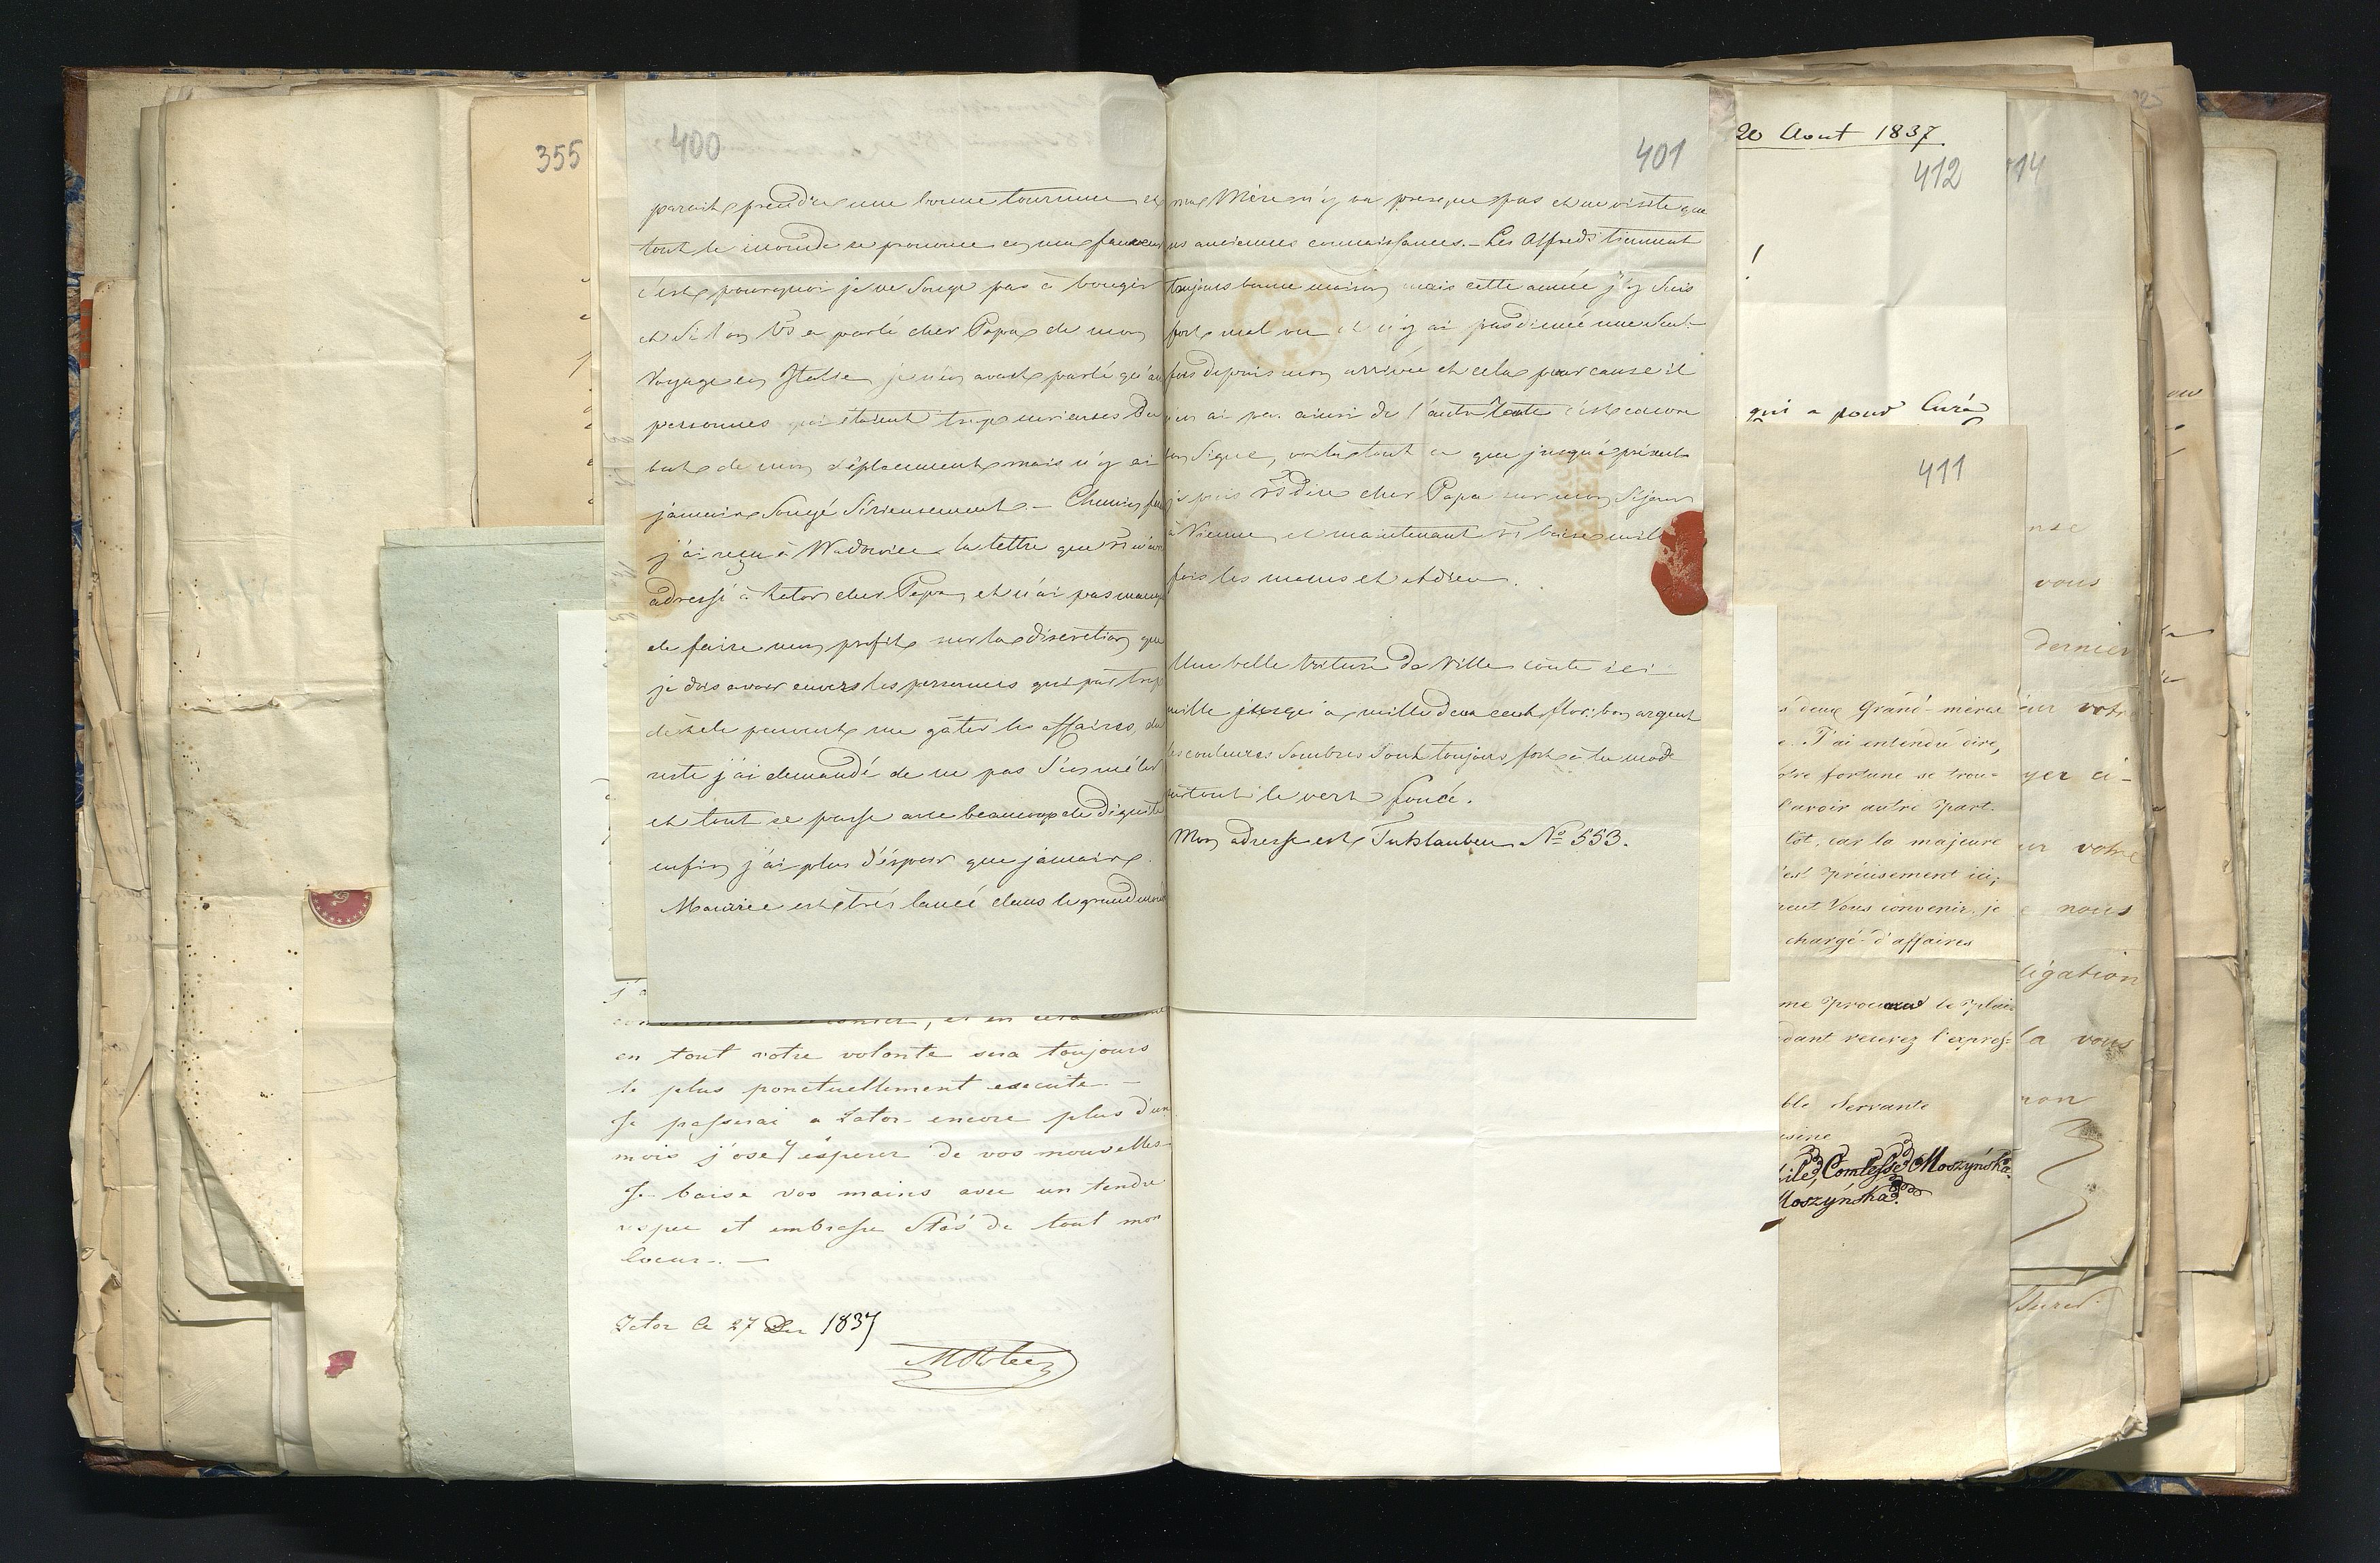 355
400
parait prendre une bonne tournure et
tout le monde se prononce en ma faveur
c'est pourquoi je ne songe pas à bouger
et si l'on Vs a parlé cher Papa de mon
Voyage en Italie je n'en avait parlé qu'aux
personnes qui étaient trop curieuses du
but de mon déplacement mais n'y ai
jamais songé sérieusement. – Chemin
j'ai reçu à Wadowice la lettre que Vs
adressé à Zator cher Papa et n'ai pas manqué
de faire mon profit sur la discretion que
je dois avoir envers les personnes qui par trop
de zele peuvent me gâter les affaires, du
reste j'ai demandé de ne pas s'en mêler
et tout se passe avec beaucoup de dignité
enfin j'ai plus d'éspoir que jamais.
Maurice est très lancé dans le grand monde
401
ma Mère n'y va presque pas et ne visite que
ses anciennes connaissances. – Les Alfreds tiennent
toujours bonne maison mais cette année j'y suis
fort mal vu et n'y ai pas dinée une seule
fois depuis mon arrivée et cela pour cause il
ainsi de l'autre c'est encore
bon signe, voila tout ce que jusqu'à présent
je puis Vs dire cher Papa sur mon séjour
à Vienne et maintenant Vs baise mille
fois les mains et Adieu.
Une belle voiture de Ville coute ici
mille jusqu'a mille deux cent flor: bon argent
les couleurs sombres sont toujours fort à la mode
surtout le vert foncé.
Mon adresse est Tuchlauben No 553.
en tout votre volonte sera toujours
le plus ponctuellement execute. –
Je passerai a Zator encore plus d'un
mois j'ose ésperer de vos nouvelles
Je baise vos mains avec un tendre
respec et embrasse Stás de tout mon
Coeur. –
Zator le 27 1837
20 Aout 1837
412
!
qui a pour Curé
411
deux Grand-mères
J'ai entendu dire,
otre fortune se trou=
l'avoir autre part.
tôt, car la majeure
est précisement ici,
Vous convenir, je
chargé-d'affaires
me procurer le plai
dant recevez l'expres=
ble Servante
Comtesse Moszyńska
Moszyńska.
14
vous
dernier
votre
yer ci-
votre
nous
ligation
la vous
non